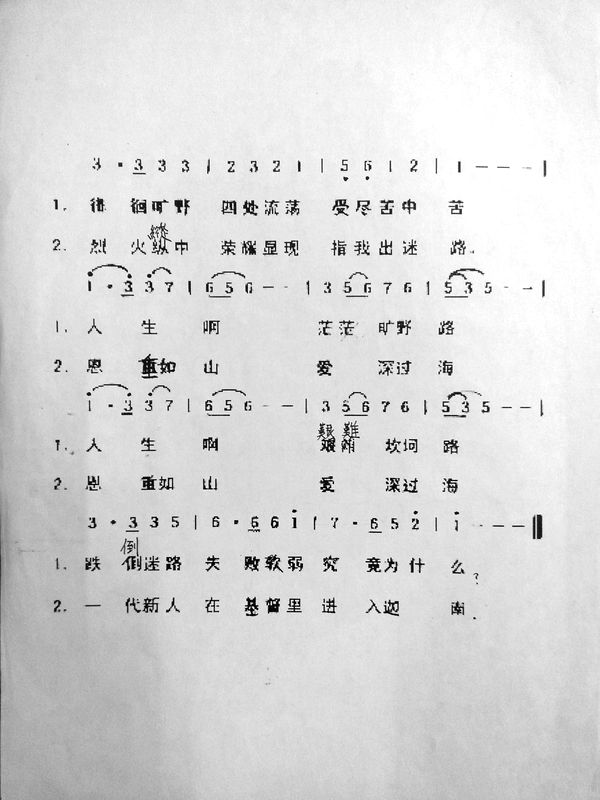 3 · 3 3 3 | 2 3 2 1 | 5 6 1 2 | 1 - - - |
1. 徘徊旷野 四处流荡 受尽苦中苦
縱
2. 烈火纵中 荣耀显现 指我出迷路.
i · 3 3 7 | 6 5 6 - - | 3 5 6 7 6 | 5 3 5 - - |
1. 人生啊 茫茫旷野路
2. 恩重如山 爱深过海
i · 3 3 7 | 6 5 6 - - | 3 5 6 7 6 | 5 3 5 - - |
艱難
1. 人生啊 坎坷路
2. 恩重如山 爱深过海
3 · 3 3 5 | 6 · 6 6 i | 7 · 6 5 2 | i - - - ‖
倒
1. 跌倒迷路失败软弱究竟为什么?
2. 一代新人在基督里进入迦南.